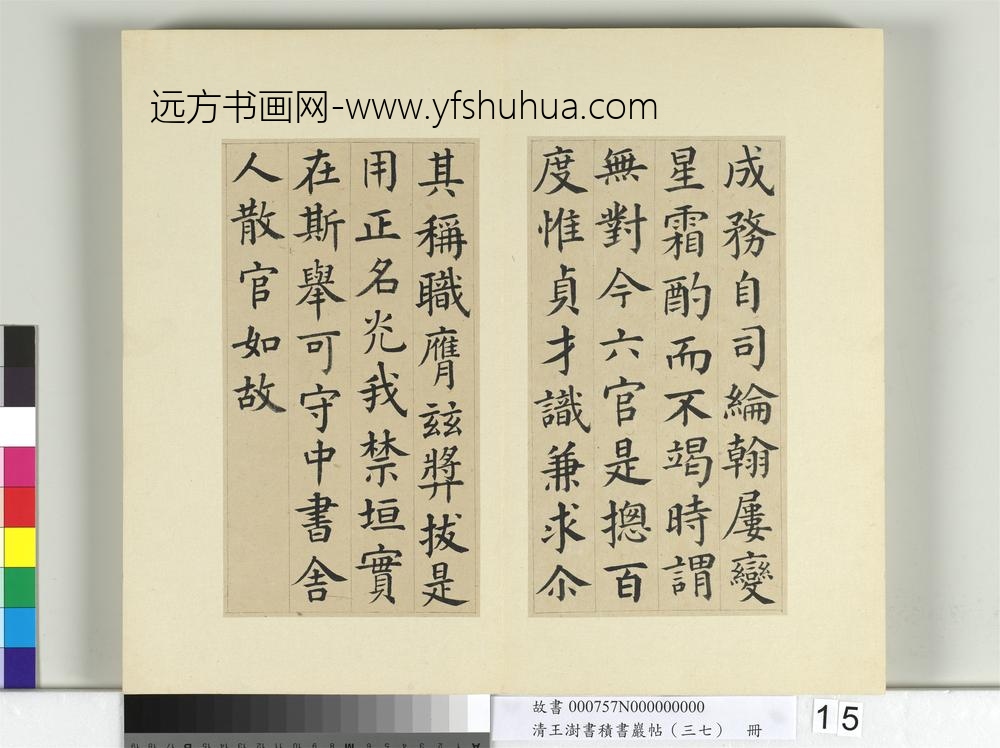 远方书画网-www.yfshuhua.com
成務自司綸翰屢變
星霜酌而不竭時謂
無對今六官是摠百
度惟貞才識兼求尒
其稱職膺玆獎拔是
用正名光我禁垣實
在斯舉可守中書舍
人散官如故
故書 000757N000000000
清王澍書積書巖帖（三七） 冊
15